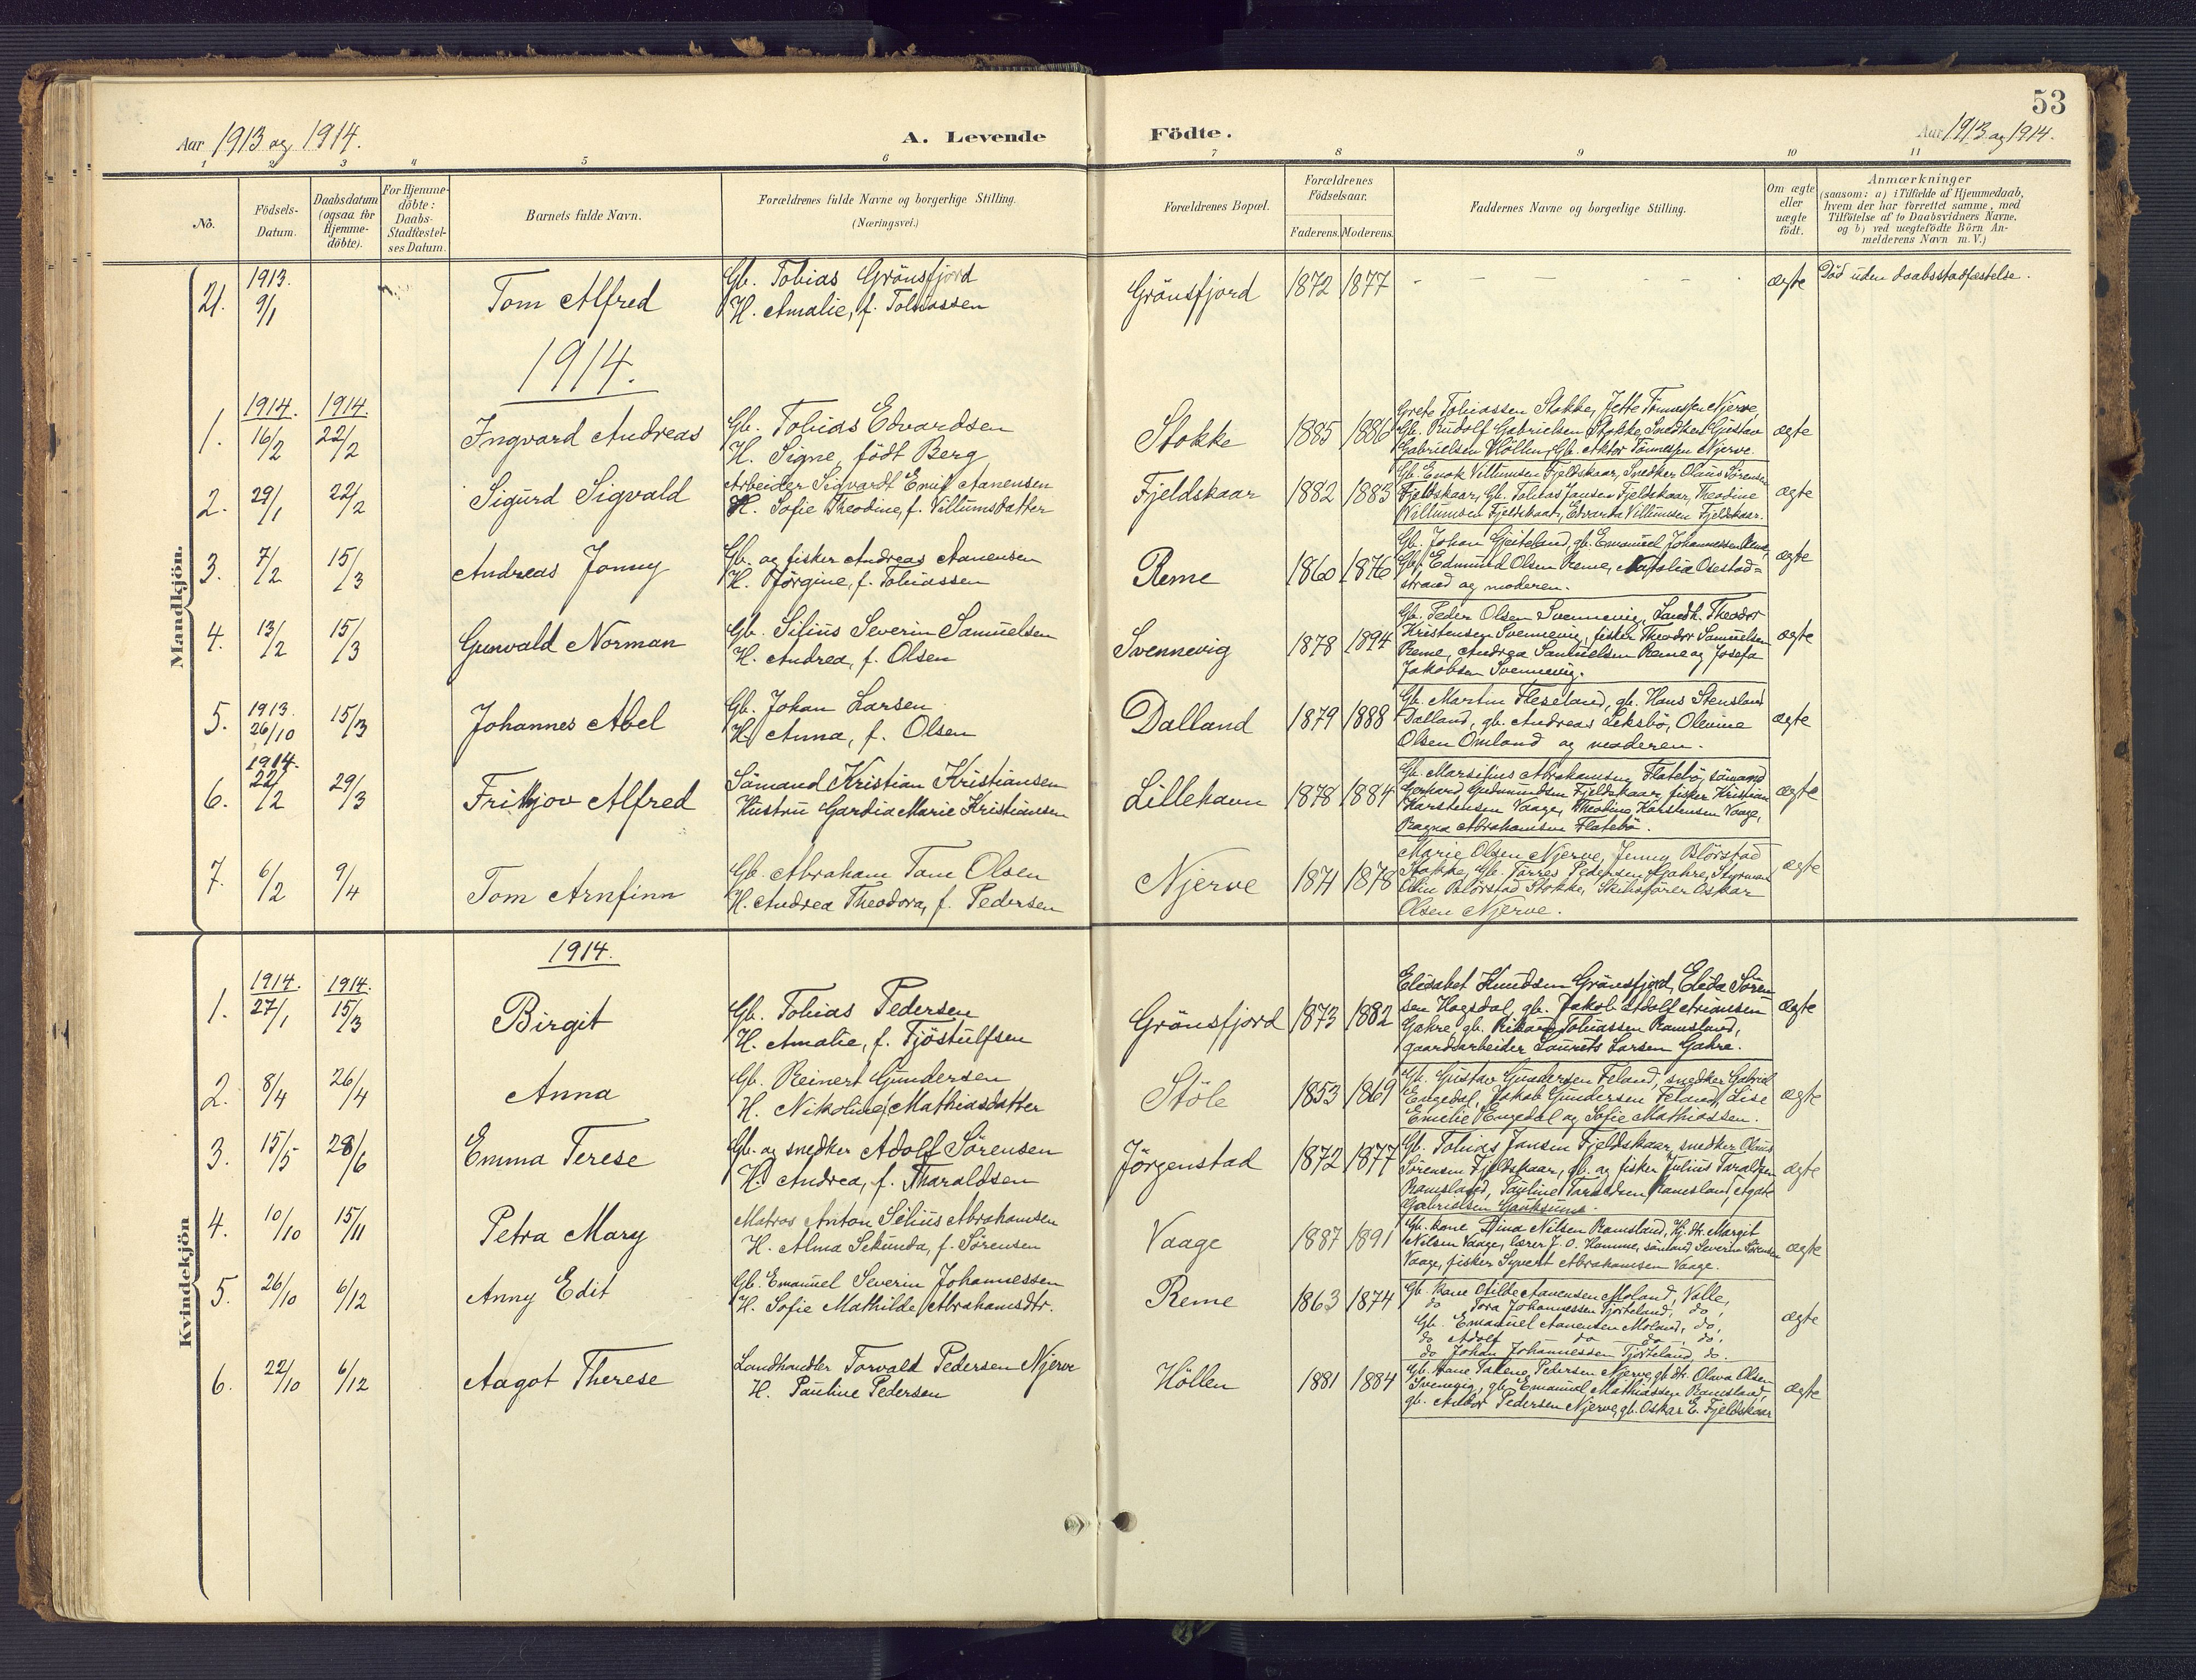 53
Aar 1913 og 1914.
A. Levende Födte.
Aar 1913 og 1914.
1 2 3 4 5 6 7 8 9 10 11
No.
Födsels-
Datum.
Daabsdatum
(ogsaa for
Hjemme-
döbte).
For Hjemme-
döbte:
Daabs-
Stadfæstel-
ses Datum.
Barnets fulde Navn.
Forældrenes fulde Navne og borgerlige Stilling.
(Næringsvei.)
Forældrenes Bopæl.
Forældrenes
Födselsaar.
Faderens. Moderens.
Faddernes Navne og borgerlige Stilling.
Om ægte
eller
uægte
födt.
Anmærkninger
(saasom: a) i Tilfælde af Hjemmedaab,
hvem der har forrettet samme, med
Tilföielse af to Daabsvidners Navne,
og b) ved uægtefödte Börn An-
melderens Navn m. V.)
Mandkjön.
21. 1913. 9/1
Tom Alfred
Gb. Tobias Grönsfjord
H. Amalie, f. Tobiassen
Grönsfjord 1872 1877 - — — - ægte
Död uden daabsstadfæstelse.
1914.
1. 1914. 16/2 1914. 22/2
Ingvard Andreas
Gb. Tobias Edvardsen
H. Signe, födt Berg
Stokke 1885 1886
Grete Tobiassen Stokke, Jette Tönnessen Njerve,
Gb. Rudolf Gabrielsen Stokke, Snedker Gustav
Gabrielsen Höllen, Gb. Aktor Tönnessen Njerve.
ægte
2. 29/1 22/2
Sigurd Sigvald
Arbeider Sigvardt Emil Aanensen
H. Sofie Theodine, f. Villumsdatter
Fjeldskaar 1882 1883
Gb. Enok Villumsen Fjeldskaar, Snedker Olaus Sörensen
Fjeldskaar, Gb. Tobias Jansen Fjeldskaar, Theodine
Villumsen Fjeldskaar, Edvarda Villumsen Fjeldskaar.
ægte
3. 7/2 15/3
Andreas Jonny
Gb. og fisker Andreas Aanensen
H. Jörgine, f. Tobiassen
Reme 1860 1876
Gb. Johan Gjeiteland, gb. Emanuel Johannessen Reme,
Gb. Edmund Olsen Reme, Natalia Osestad=
strand og moderen.
ægte
4. 13/2 15/3
Gunvald Norman
Gb. Silius Severin Samuelsen
H. Andrea, f. Olsen
Svennevig 1878 1894
Gb. Peder Olsen Svennevig, Landh. Theodor
Kristensen Svennevig, fisker Theodor Samuelsen
Reme, Andrea Samuelsen Reme og Josefa
Jakobsen Svennevig.
ægte
5. 1913. 26/10 15/3
Johannes Abel
Gb. Johan Larsen
H. Anna, f. Olsen
Dalland 1879 1888
Gb. Martin Fleseland, gb. Hans Stensland
Dalland, gb. Andreas Leksbö, Olevine
Olsen Omland og moderen.
ægte
6. 1914. 22/2 29/3
Frithjov Alfred
Sömand Kristian Kristiansen
Hustru Gardia Marie Kristiansen
Lillehavn 1878 1884
Gb. Marsilius Abrahamsen Flatebö, sömand
Gerhard Gudmundsen Fjeldskaar, fisker Kristian
Karstensen Vaage, Theodine Karstensen Vaage,
Ragna Abrahamsen Flatebö.
ægte
7. 6/2 9/4
Tom Arnfinn
Gb. Abraham Tom Olsen
H. Andrea Theodora, f. Pedersen
Njerve 1871 1878
Marie Olsen Njerve, Jenny Blörstad
Stokke, Gb. Tarres Pedersen Gahre, Styrmand
Olin Blörstad Stokke, Skibsförer Oskar
Olsen Njerve.
ægte
Kvindekjön
1914.
1. 1914. 27/1 1914. 15/3
Birgit
Gb. Tobias Pedersen
H. Amalie, f. Tjöstulfsen
Grönsfjord 1873 1882
Elisabet Knudsen Grönsfjord, Elida Sören-
sen Hagedal, gb. Jakob Adolf Arianssen
Gahre, gb. Rikard Tobiassen Ramsland,
gaardsarbeider Laurits Larsen Gahre.
ægte
2. 8/4 26/4
Anna
Gb. Reinert Gundersen
H. Nikoline Mathiasdatter
Stöle 1853 1869
Gb. Gustav Gundersen Feland, snedker Gabriel
Engedal, Jakob Gundersen Feland, Lise
Emilie Engedal og Sofie Mathiassen.
ægte
3. 15/5 28/6
Emma Terese
Gb. og snedker Adolf Sörensen
H. Andrea, f. Tharaldsen
Jörgenstad 1872 1877
Gb. Tobias Jansen Fjeldskaar, snedker Olaus
Sörensen Fjeldskaar, gb. og fisker Julius Taraldsen
Ramsland, Pauline Taraldsen Ramsland, Agate
Gabrielsen
ægte
4. 10/10 15/11
Petra Mary
Matros Anton Silius Abrahamsen
H. Alma Sekunda, f. Sörensen
Vaage 1887 1891
Gb. kone Dina Nilsen Ramsland, Kj. dtr. Margit
Nilsen Vaage, lærer J. O. Homme, sömand Severin Sörensen
Vaage, fisker Syvert Abrahamsen Vaage.
ægte
5. 26/10 6/12
Anny Edit
Gb. Emanuel Severin Johannessen
H. Sofie Mathilde Abrahamsdtr.
Reme 1863 1874
Gb. kone Otilde Aanensen Moland, Valle,
do Tora Johannessen Tjörteland, do,
Gb. Emanuel Aanensen Moland, do,
do Adolf do do, do,
do Johan Johannessen Tjörteland do.
ægte
6. 22/10 6/12
Aagot Therese
Landhandler Torvald Pedersen Njerve
H. Pauline Pedersen
Höllen 1881 1884
Gb. kone Talene Pedersen Njerve, gb. dtr. Olava Olsen
Svennevig, gb. Emanuel Mathiassen Ramsland,
gb. Anton Pedersen Njerve, gb. Oskar E. Fjeldskaar
ægte